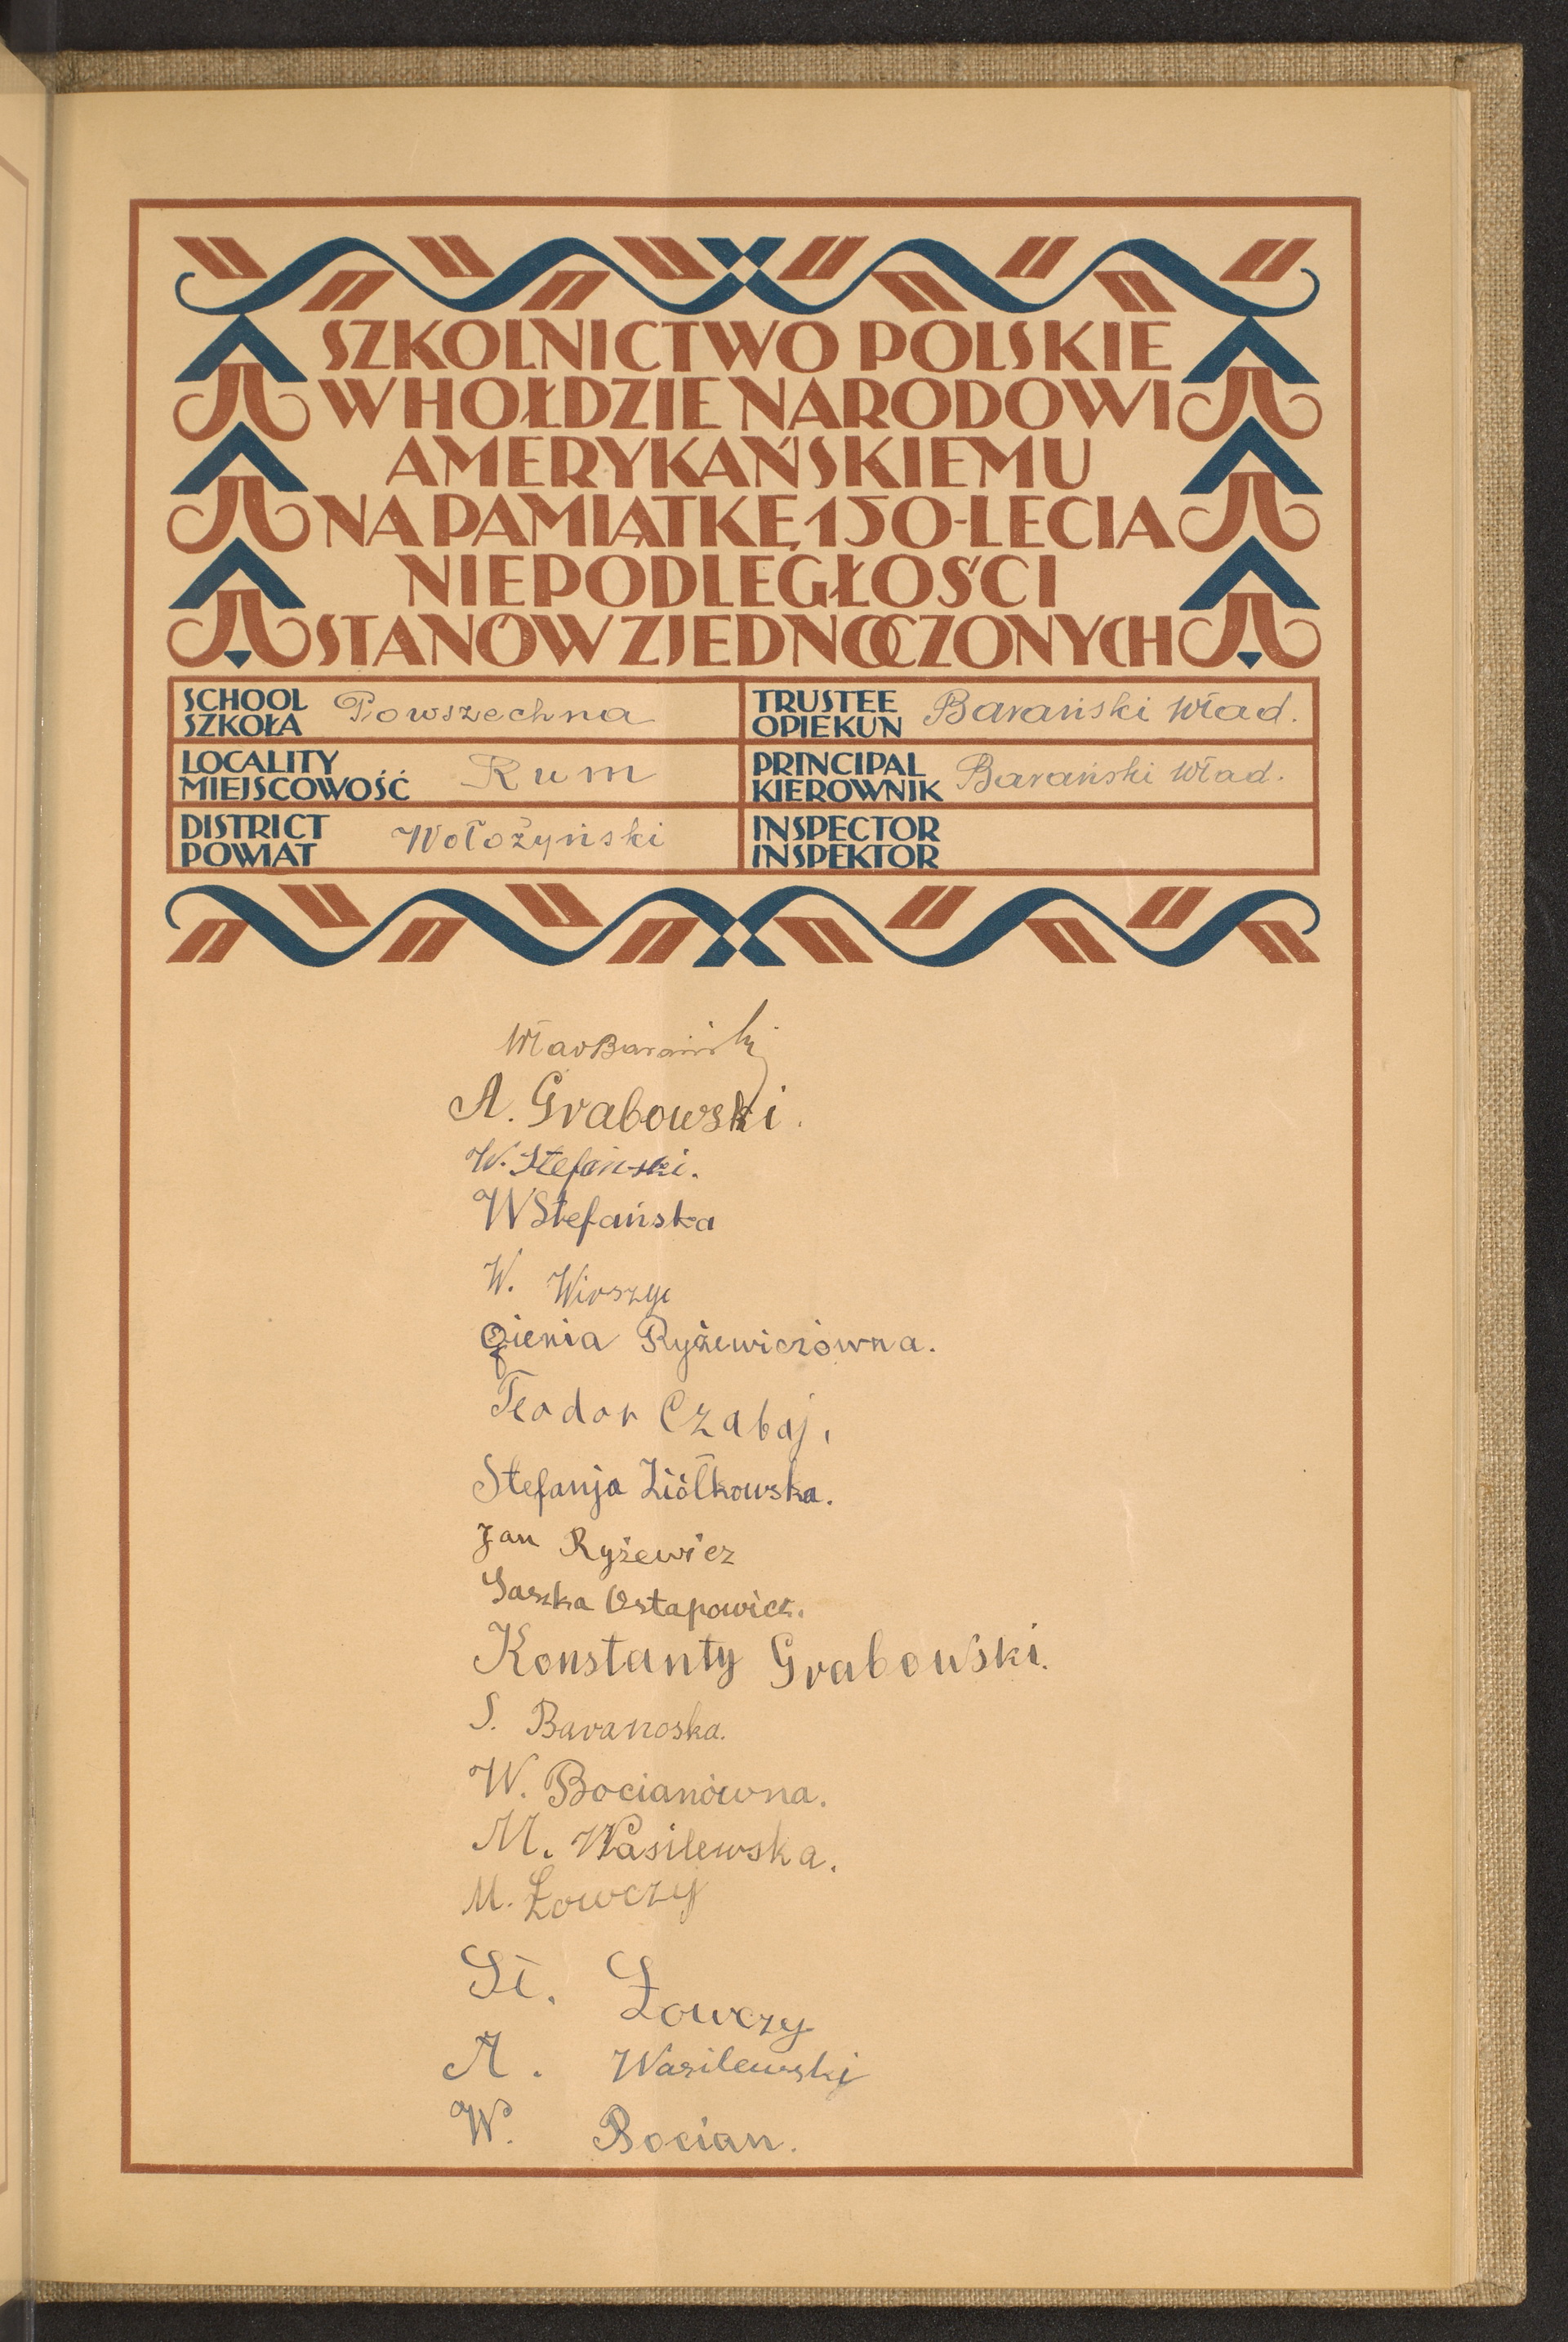 SZKOLNICTWO POLSKIE
W HOŁDZIE NARODOWI
AMERYKAŃSKIEMU
NA PAMIĄTKĘ 150-LECIA
NIEPODLEGŁOŚCI
STANÓW ZJEDNOCZONYCH
SCHOOL
SZKOŁA Powszechna
TRUSTEE
OPIEKUN Barański Wład.
LOCALITY
MIEJSCOWOŚĆ Rum
PRINCIPAL
KIEROWNIK Barański Wład.
DISTRICT
POWIAT Wołożyński
INSPECTOR
INSPEKTOR
Wład Barański
A. Grabowski.
W. Stefański.
W Stefańska
W. Wirszyc
Ryżewiczówna.
Teodor Czabaj.
Stefanja Ziółkowska.
Jan Ryżewicz
Saszka Ostapowicz.
Konstanty Grabowski.
S. Baranoska.
W. Bocianówna.
M. Wasilewska.
M. Łowczy
St. Łowczy
A. Wasilewski
W. Bocian.